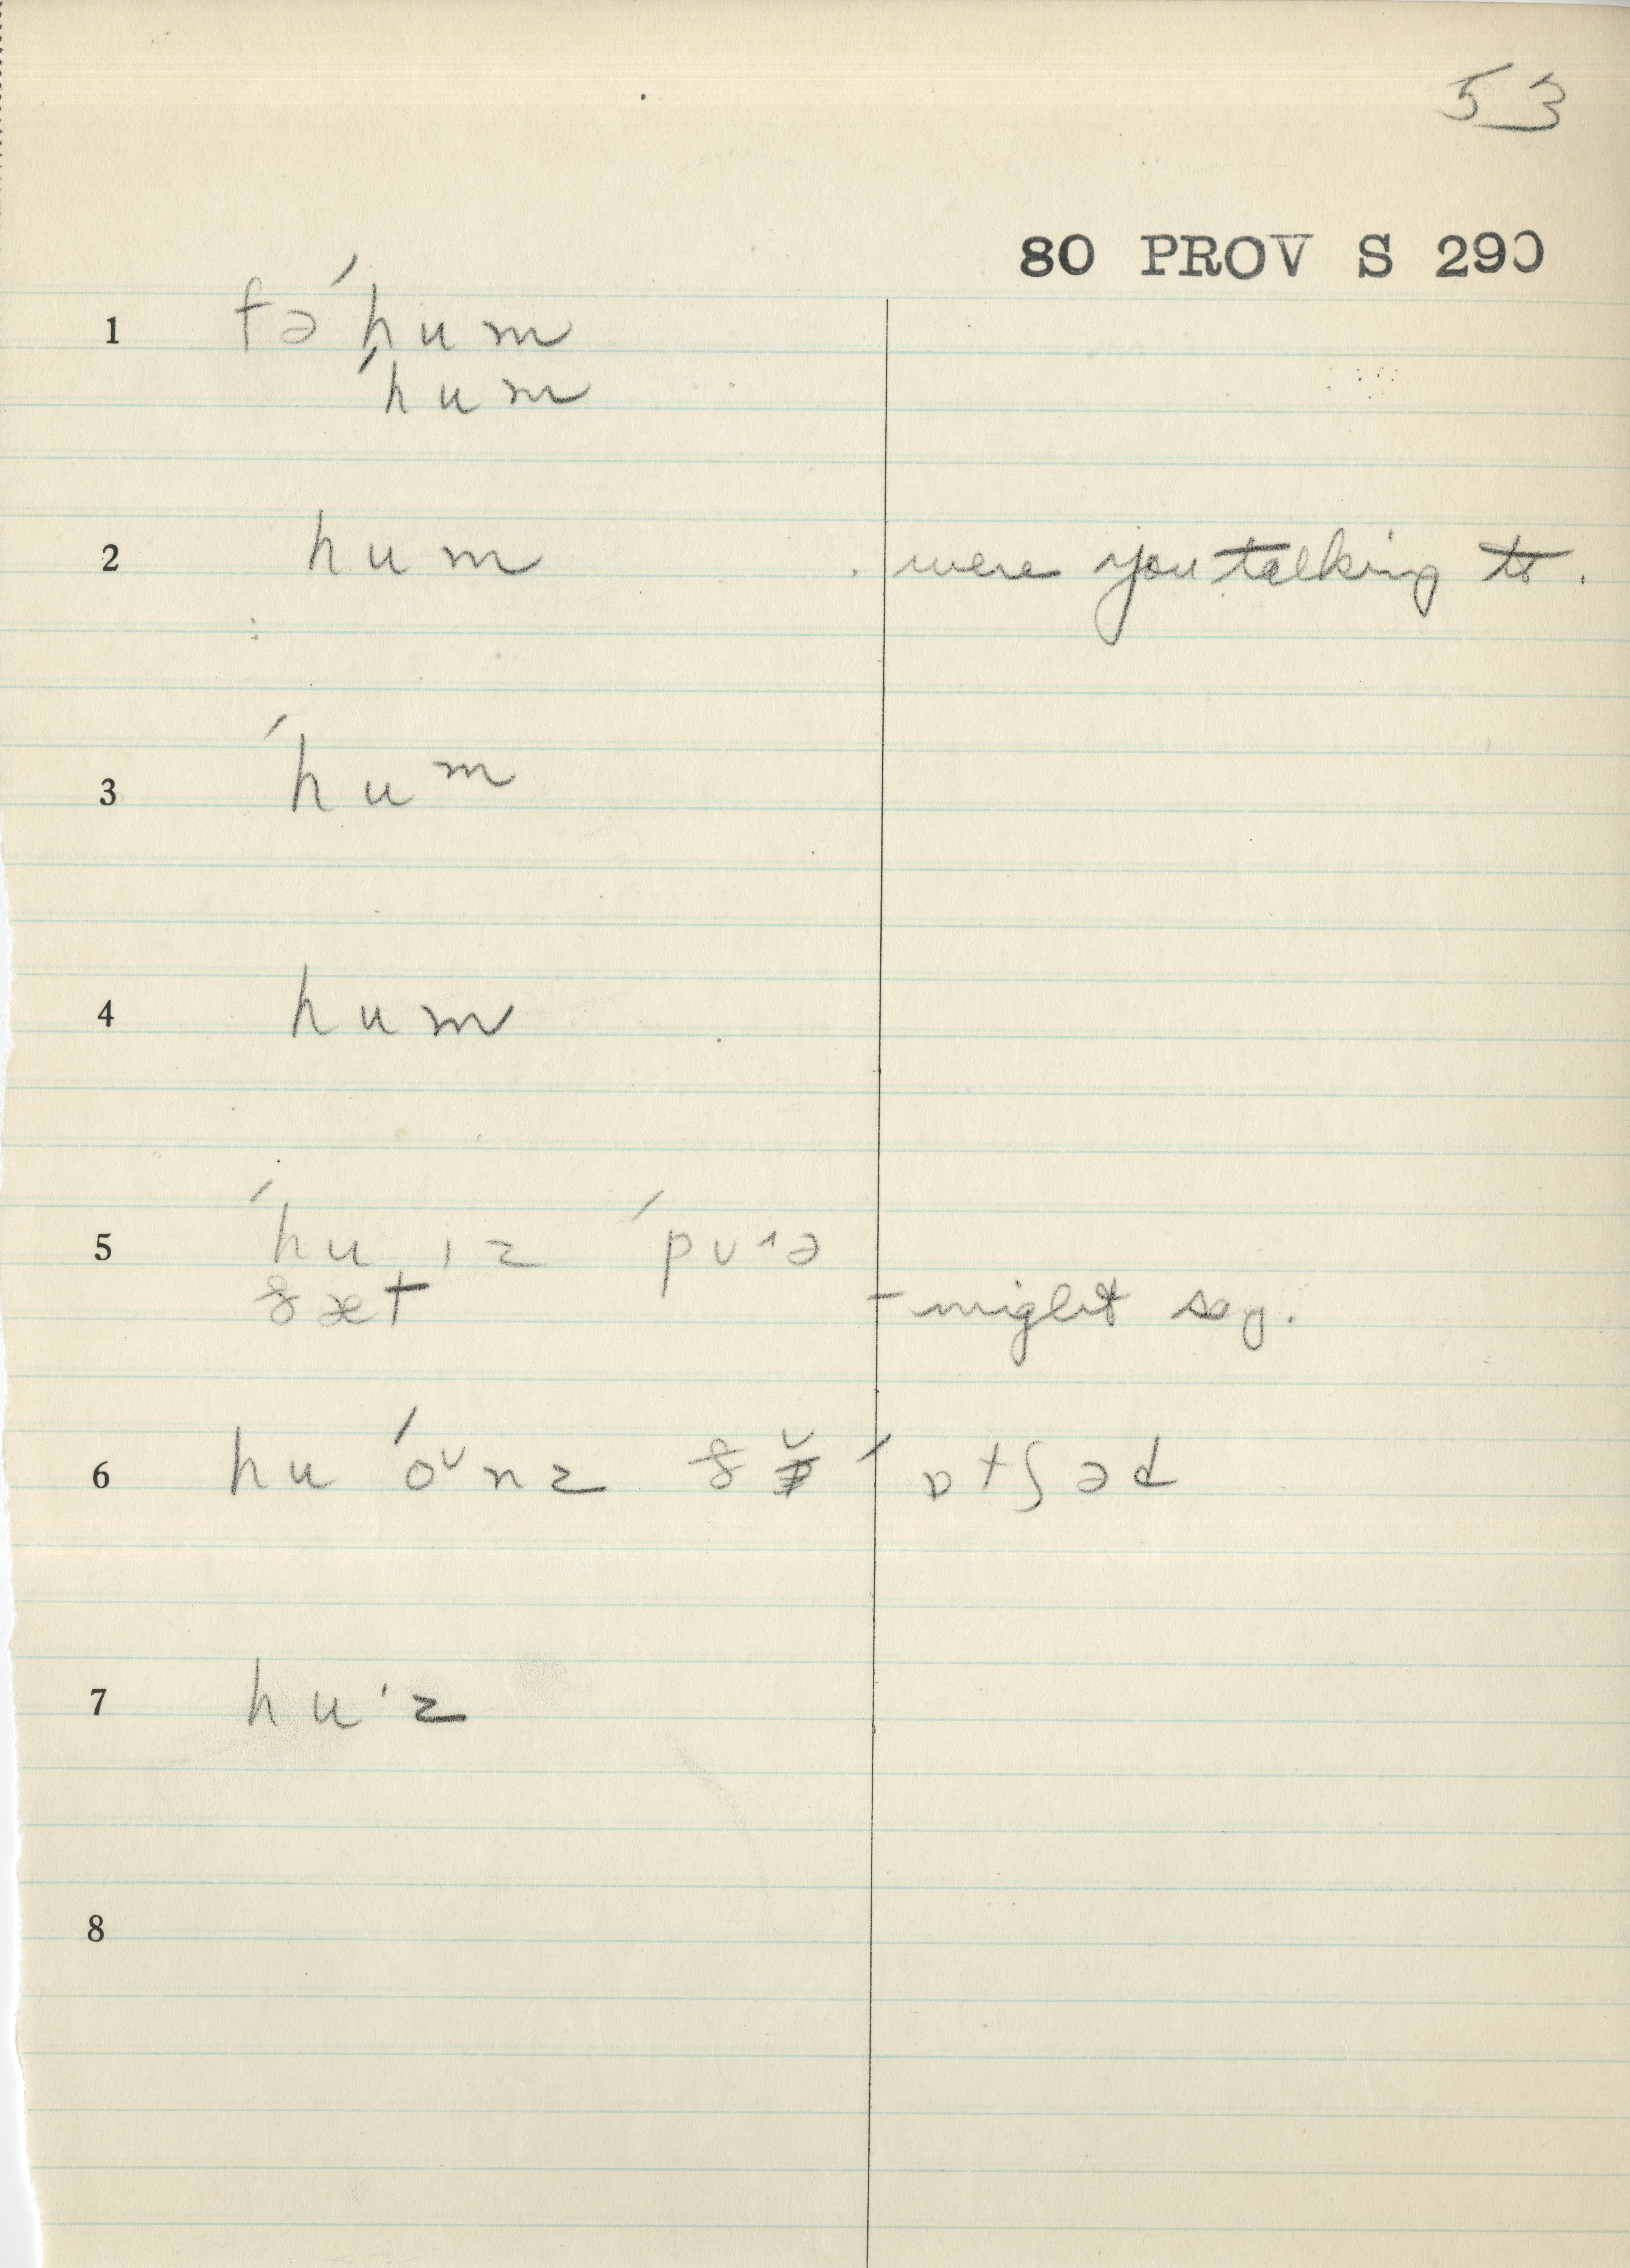 53
80 PROV S 290
1 fə ˈhum
ˈhum
2 hum . were you talking to .
3 ˈhuᵐ
4 hum
5 ˈhu ɪz ˈpʊᶺə
ðæt – might say.
6 hu ˈoᵛnz ðˇ ˈɒtʃəd
7 huˈz
8